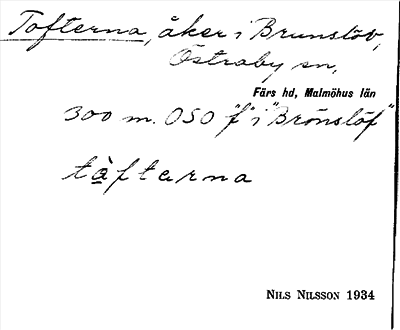 Tofterna, åker i Brunslöv,
Östraby sn,
Färs hd, Malmöhus län
300 m. OSO "f" i "Brönslöf"
tàfterna
NILS NILSSON 1934